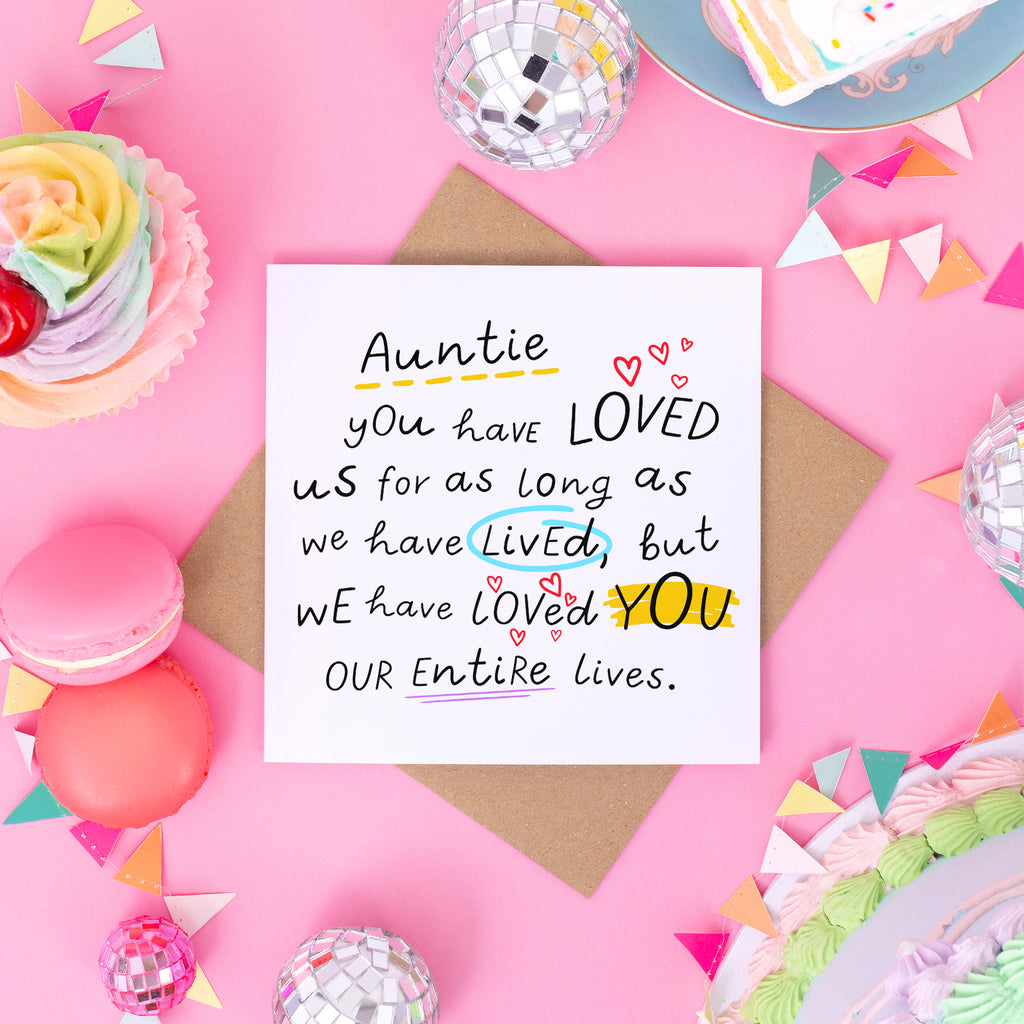 Auntie
yOu havE LOVED
us for as long as
we have LivEd, but
wE have lOVed YOU
OUR EntiRe lives.